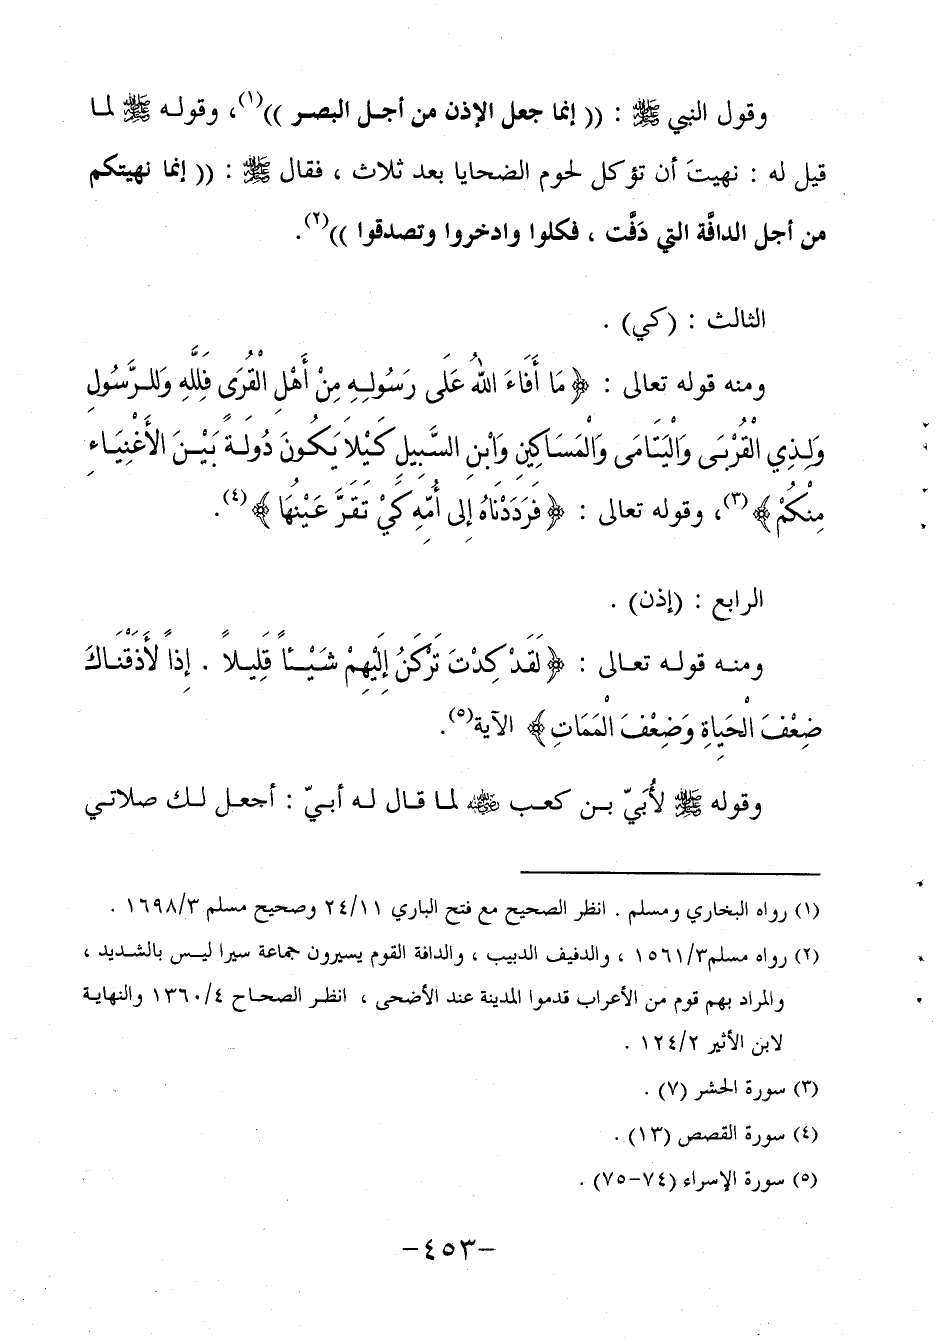 وقول النبي ﷺ : (( إنما جعل الإذن من أجل البصر ))(١)، وقوله ﷺ لما
قيل له : نهيتَ أن تؤكل لحوم الضحايا بعد ثلاث ، فقال ﷺ : (( إنما نهيتكم
من أجل الدافَّة التي دَفَّت ، فكلوا وادخروا وتصدقوا ))(٢).
الثالث : (كي) .
ومنه قوله تعالى : ﴿ مَا أَفَاءَ اللهُ عَلَى رَسُولِهِ مِنْ أَهْلِ الْقُرَى فَلِلَّهِ وَلِلرَّسُولِ
وَلِذِي الْقُرْبَى وَالْيَتَامَى وَالْمَسَاكِينِ وَابْنِ السَّبِيلِ كَيْلاَ يَكُونَ دُولَةً بَيْنَ الأَغْنِيَاءِ
مِنْكُمْ ﴾(٣)، وقوله تعالى : ﴿ فَرَدَدْنَاهُ إِلى أُمِّهِ كَيْ تَقَرَّ عَيْنُهَا ﴾(٤).
الرابع : (إذن) .
ومنه قوله تعالى : ﴿ لَقَدْ كِدْتَ تَرْكَنُ إِلَيْهِمْ شَيْئاً قَلِيلاً . إِذاً لأَذَقْنَاكَ
ضِعْفَ الْحَيَاةِ وَضِعْفَ الْمَمَاتِ ﴾ الآية(٥).
وقوله ﷺ لأُبَيّ بن كعب رضي الله عنه لما قال له أبيّ : أجعل لك صلاتي
(١) رواه البخاري ومسلم . انظر الصحيح مع فتح الباري ٢٤/١١ وصحيح مسلم ١٦٩٨/٣ .
(٢) رواه مسلم ١٥٦١/٣ ، والدفيف الدبيب ، والدافة القوم يسيرون جماعة سيرا ليس بالشديد ،
والمراد بهم قوم من الأعراب قدموا المدينة عند الأضحى ، انظر الصحاح ١٣٦٠/٤ والنهاية
لابن الأثير ١٢٤/٢ .
(٣) سورة الحشر (٧) .
(٤) سورة القصص (١٣) .
(٥) سورة الإسراء (٧٤-٧٥) .
-٤٥٣-